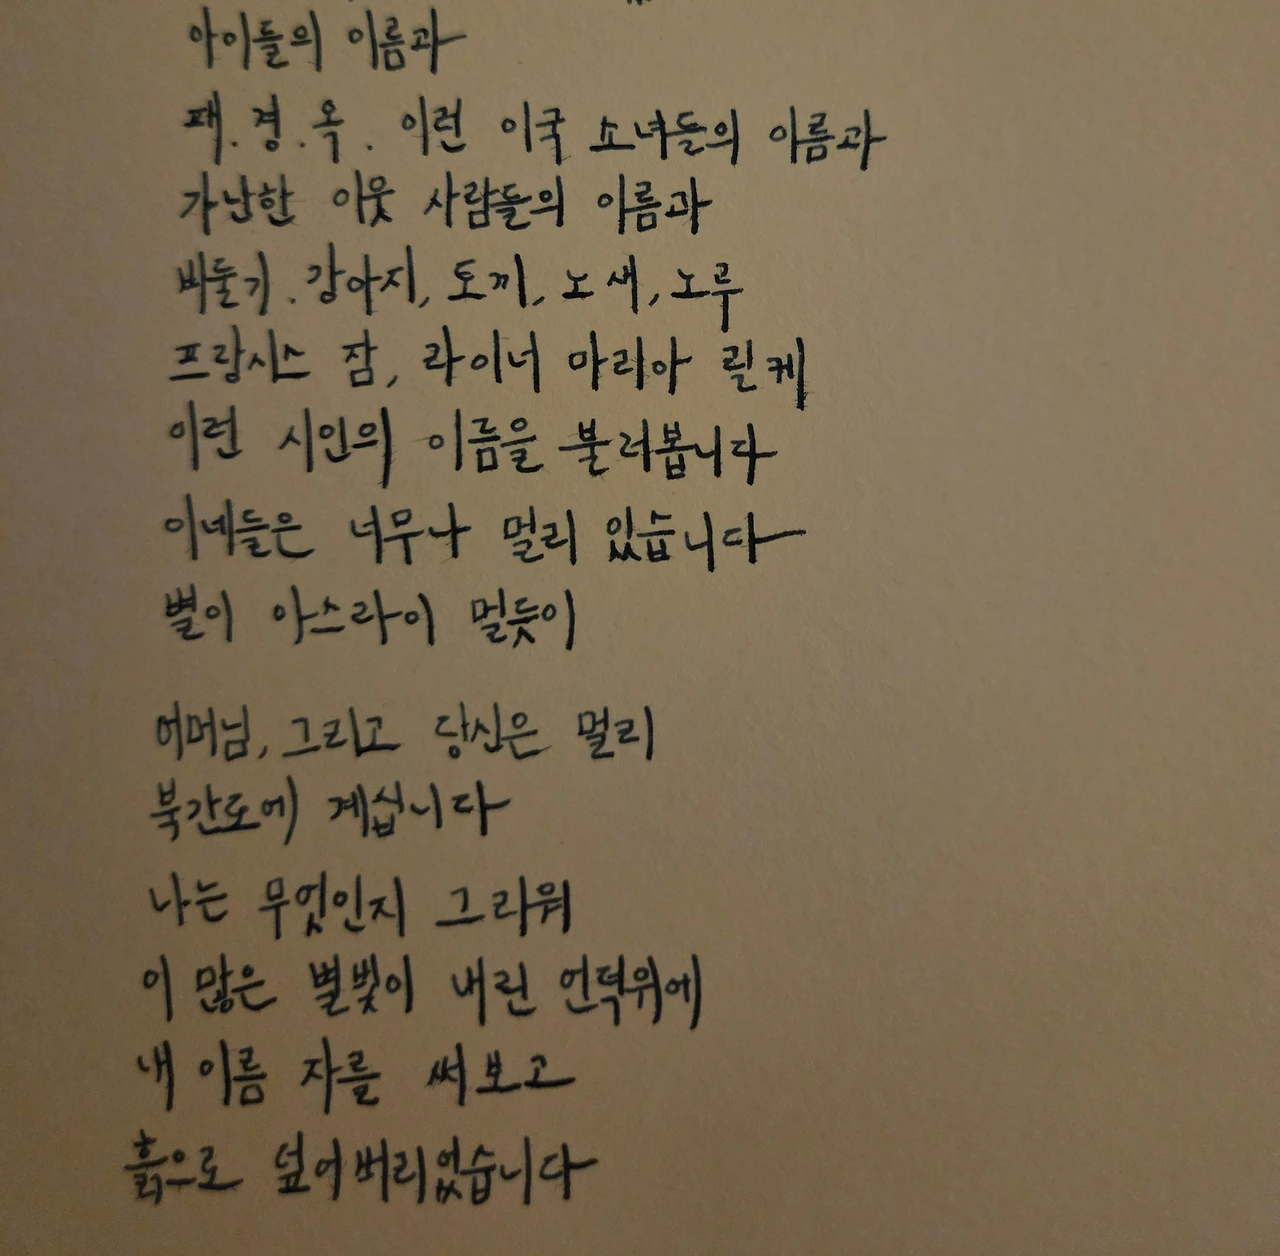 아이들의 이름과
패.경.옥. 이런 이국 소녀들의 이름과
가난한 이웃 사람들의 이름과
비둘기.강아지, 토끼, 노새, 노루
프랑시스 잠, 라이너 마리아 릴케
이런 시인의 이름을 불러봅니다
이네들은 너무나 멀리 있습니다
별이 아스라이 멀듯이
어머님, 그리고 당신은 멀리
북간도에 계십니다
나는 무엇인지 그리워
이 많은 별빛이 내린 언덕위에
내 이름 자를 써보고
흙으로 덮어버리었습니다